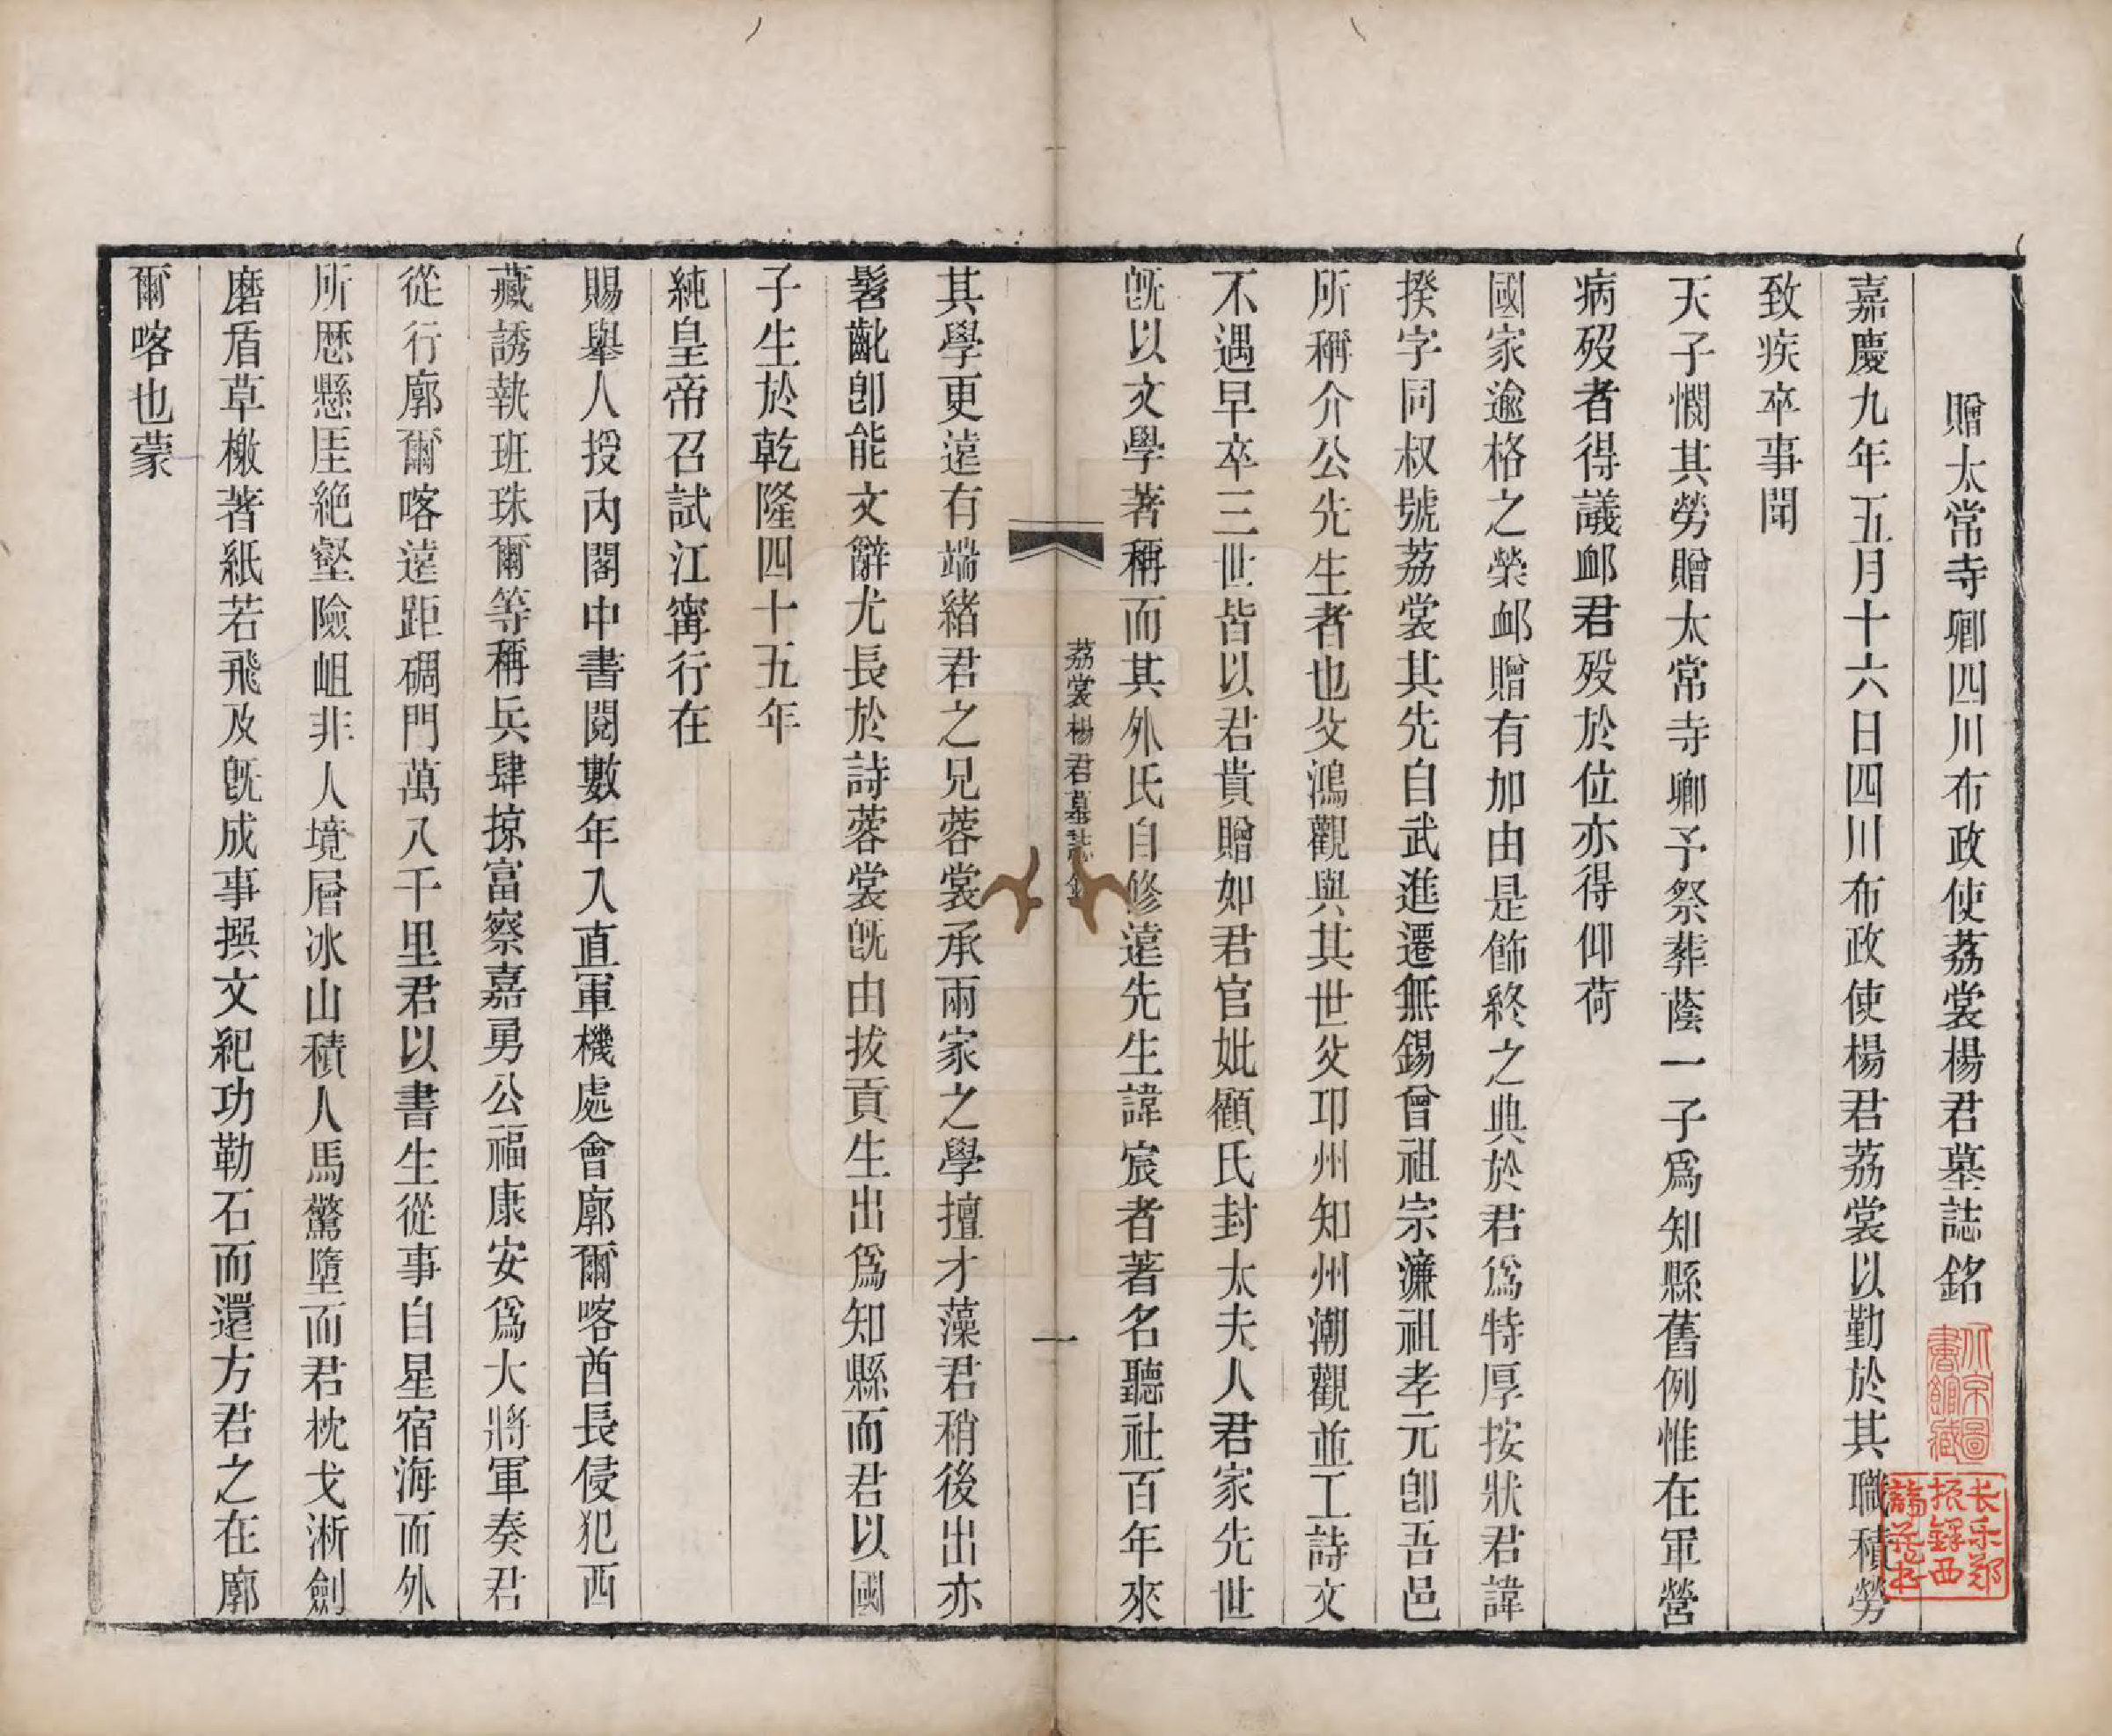 贈太常寺卿四川布政使荔裳楊君墓誌銘
嘉慶九年五月十六日四川布政使楊君荔裳以勤於其職積勞
致疾卒事聞
天子憫其勞贈太常寺卿予祭葬蔭一子爲知縣舊例惟在軍營
病歿者得議卹君歿於位亦得仰荷
國家逾格之榮卹贈有加由是飾終之典於君爲特厚按狀君諱
揆字同叔號荔裳其先自武進遷無錫曾祖宗濂祖孝元卽吾邑
所稱介公先生者也父鴻觀與其世父邛州知州潮觀並工詩文
不遇早卒三世皆以君貴贈如君官妣顧氏封太夫人君家先世
旣以文學著稱而其外氏自修遠先生諱宸者著名聽社百年來
荔裳楊君墓誌銘
一
其學更遠有端緒君之兄蓉裳承兩家之學擅才藻君稍後出亦
髫齔卽能文辭尤長於詩蓉裳旣由拔貢生出爲知縣而君以國
子生於乾隆四十五年
純皇帝召試江寧行在
賜舉人授內閣中書閱數年入直軍機處會廓爾喀酋長侵犯西
藏誘執班珠爾等稱兵肆掠富察嘉勇公福康安爲大將軍奏君
從行廓爾喀遠距碉門萬八千里君以書生從事自星宿海而外
所歷懸厓絶壑險岨非人境層冰山積人馬驚墮而君枕戈淅劍
磨盾草檄著紙若飛及旣成事撰文紀功勒石而還方君之在廓
爾喀也蒙
北京圖書館藏
長樂鄭振鐸西諦藏書